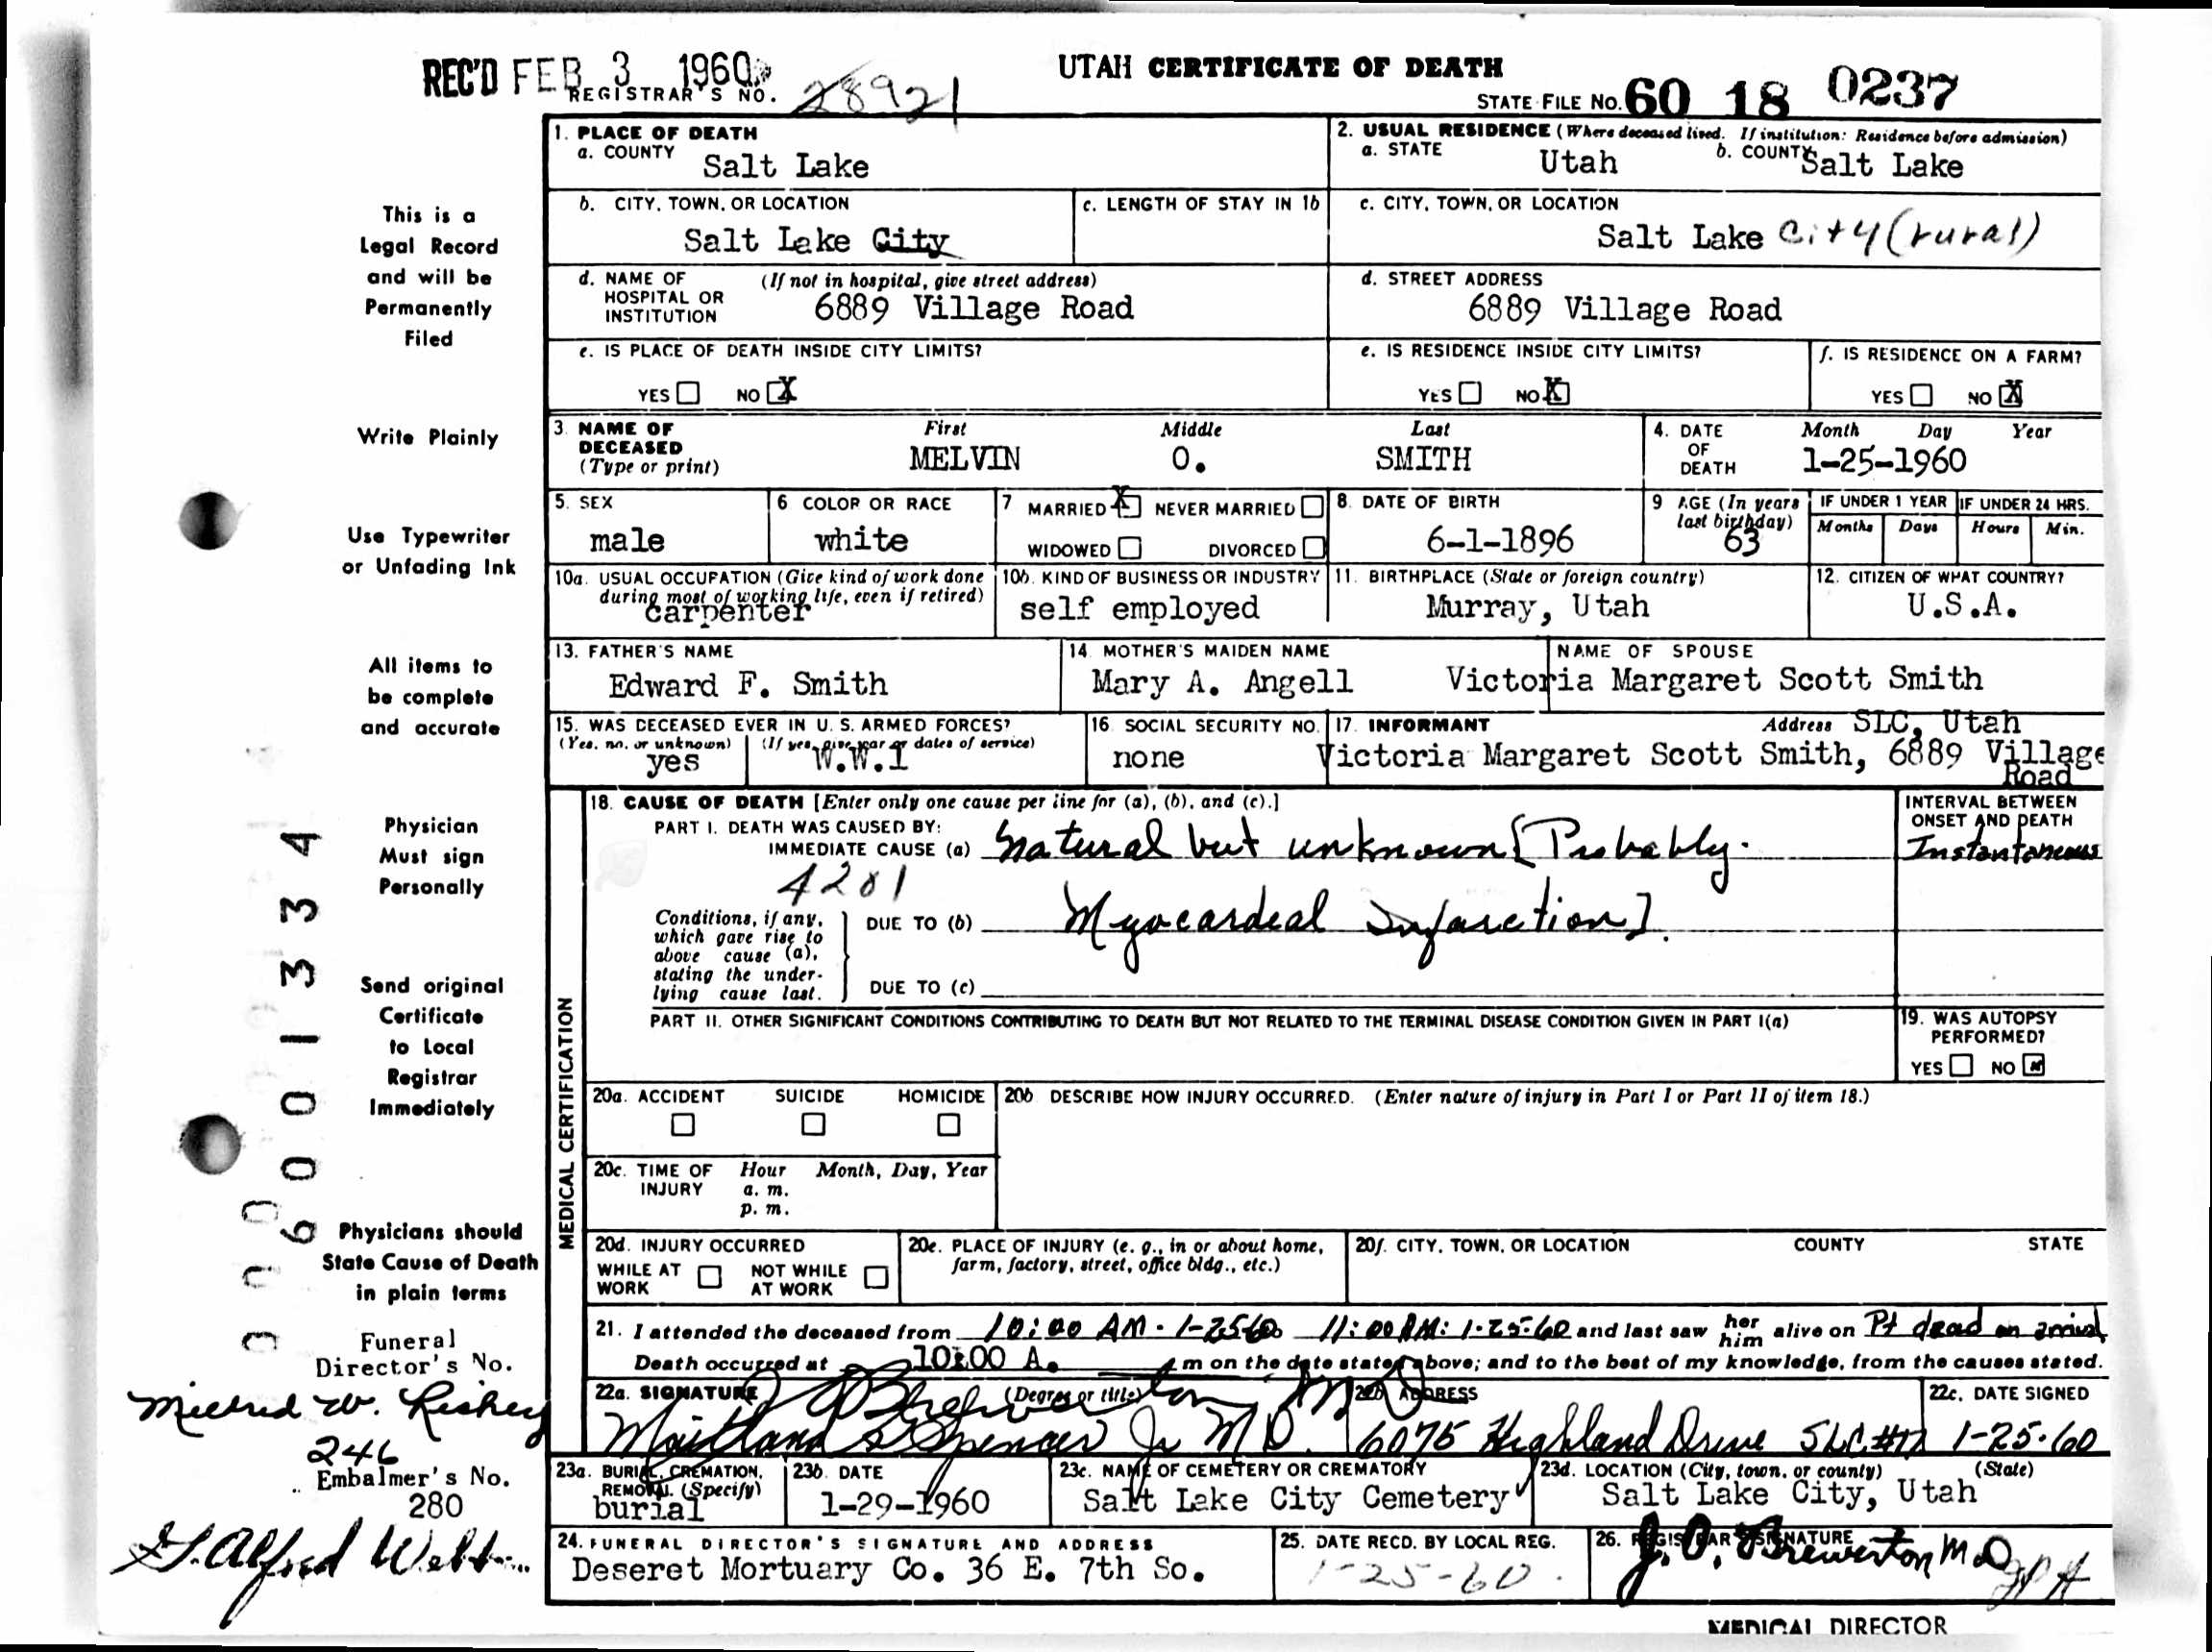 REC'D FEB 3 1960
REGISTRAR'S NO. 28921
UTAH CERTIFICATE OF DEATH
STATE FILE NO. 60 18 0237
This is a
Legal Record
and will be
Permanently
Filed
Write Plainly
Use Typewriter
or Unfading Ink
All items to
be complete
and accurate
Physician
Must sign
Personally
Send original
Certificate
to Local
Registrar
Immediately
Physicians should
State Cause of Death
in plain terms
Funeral
Director's No.
246
Embalmer's No.
280
6001334
1. PLACE OF DEATH
a. COUNTY Salt Lake
2. USUAL RESIDENCE (Where deceased lived. If institution: Residence before admission)
a. STATE Utah b. COUNTY Salt Lake
b. CITY, TOWN, OR LOCATION Salt Lake City
c. LENGTH OF STAY IN 1b
c. CITY, TOWN, OR LOCATION Salt Lake City (rural)
d. NAME OF HOSPITAL OR INSTITUTION (If not in hospital, give street address) 6889 Village Road
d. STREET ADDRESS 6889 Village Road
e. IS PLACE OF DEATH INSIDE CITY LIMITS?
YES NO X
e. IS RESIDENCE INSIDE CITY LIMITS?
YES NO X
f. IS RESIDENCE ON A FARM?
YES NO X
3. NAME OF DECEASED (Type or print) First MELVIN Middle O. Last SMITH
4. DATE OF DEATH Month Day Year 1-25-1960
5. SEX male
6 COLOR OR RACE white
7 MARRIED X NEVER MARRIED
WIDOWED DIVORCED
8. DATE OF BIRTH 6-1-1896
9 AGE (In years last birthday) 63
IF UNDER 1 YEAR Months Days
IF UNDER 24 HRS. Hours Min.
10a. USUAL OCCUPATION (Give kind of work done during most of working life, even if retired) carpenter
10b. KIND OF BUSINESS OR INDUSTRY self employed
11. BIRTHPLACE (State or foreign country) Murray, Utah
12. CITIZEN OF WHAT COUNTRY? U.S.A.
13. FATHER'S NAME Edward F. Smith
14. MOTHER'S MAIDEN NAME Mary A. Angell
NAME OF SPOUSE Victoria Margaret Scott Smith
15. WAS DECEASED EVER IN U. S. ARMED FORCES?
(Yes, no, or unknown) yes (If yes, give war or dates of service) W.W.1
16. SOCIAL SECURITY NO. none
17. INFORMANT Address SLC, Utah
Victoria Margaret Scott Smith, 6889 Village Road
MEDICAL CERTIFICATION
18. CAUSE OF DEATH [Enter only one cause per line for (a), (b), and (c).]
INTERVAL BETWEEN ONSET AND DEATH
PART I. DEATH WAS CAUSED BY:
IMMEDIATE CAUSE (a) Natural but unknown [Probably Instantaneous
4201
Conditions, if any, which gave rise to above cause (a), stating the underlying cause last.
DUE TO (b) Myocardeal Infarction].
DUE TO (c)
PART II. OTHER SIGNIFICANT CONDITIONS CONTRIBUTING TO DEATH BUT NOT RELATED TO THE TERMINAL DISEASE CONDITION GIVEN IN PART I(a)
19. WAS AUTOPSY PERFORMED?
YES NO
20a. ACCIDENT SUICIDE HOMICIDE
20b DESCRIBE HOW INJURY OCCURRED. (Enter nature of injury in Part I or Part II of item 18.)
20c. TIME OF INJURY Hour Month, Day, Year
a. m.
p. m.
20d. INJURY OCCURRED
WHILE AT WORK NOT WHILE AT WORK
20e. PLACE OF INJURY (e. g., in or about home, farm, factory, street, office bldg., etc.)
20f. CITY, TOWN, OR LOCATION COUNTY STATE
21. I attended the deceased from 10:00 AM - 1-25-60 11:00 AM: 1-25-60 and last saw her him alive on Pt dead on arrival
Death occurred at 10:00 A. m on the date stated above; and to the best of my knowledge, from the causes stated.
22a. SIGNATURE (Degree or title)
Maitland S Spencer Jr MD.
22b ADDRESS 6075 Highland Drive SLC #17
22c. DATE SIGNED 1-25-60
23a. BURIAL, CREMATION, REMOVAL (Specify) burial
23b. DATE 1-29-1960
23c. NAME OF CEMETERY OR CREMATORY Salt Lake City Cemetery
23d. LOCATION (City, town, or county) (State) Salt Lake City, Utah
24. FUNERAL DIRECTOR'S SIGNATURE AND ADDRESS
Deseret Mortuary Co. 36 E. 7th So.
25. DATE RECD. BY LOCAL REG. 1-25-60
26. REGISTRAR'S SIGNATURE J. O. Brewerton M.D.
MEDICAL DIRECTOR